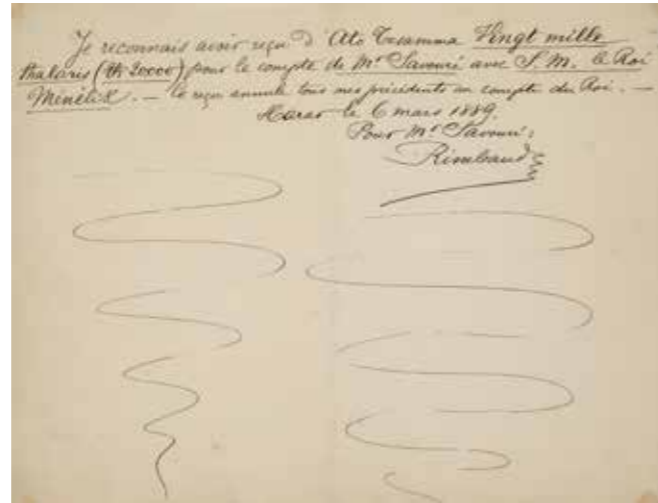 Je reconnais avoir reçu d'Ato Tesamma Vingt mille
thalaris (th 20000) pour le compte de Mr Savouré avec S. M. le Roi
Ménélik. — Ce reçu annule tous mes précédents au compte du Roi. —
Harar le 6 mars 1889.
Pour Mr Savouré:
Rimbaud